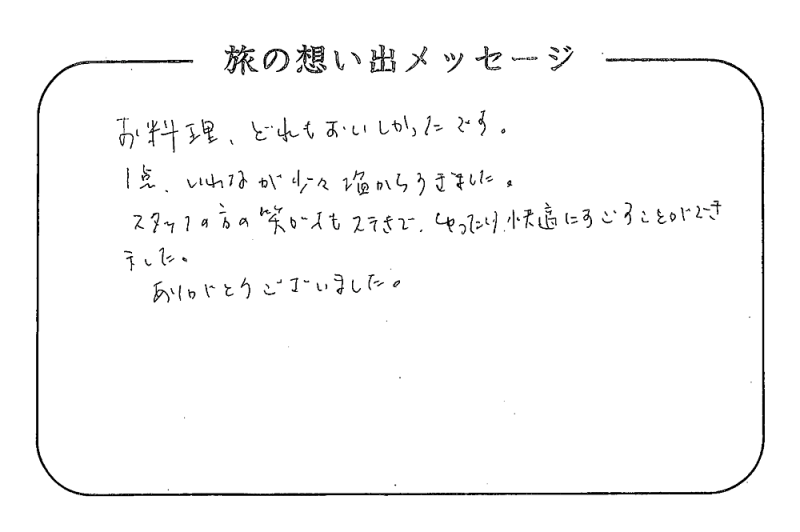 旅の想い出メッセージ
お料理、どれもおいしかったです。
1点、いわなが少々塩からすぎました。
スタッフの方の笑がおもステキで、ゆったり、快適にすごすことができ
ました。
ありがとうございました。